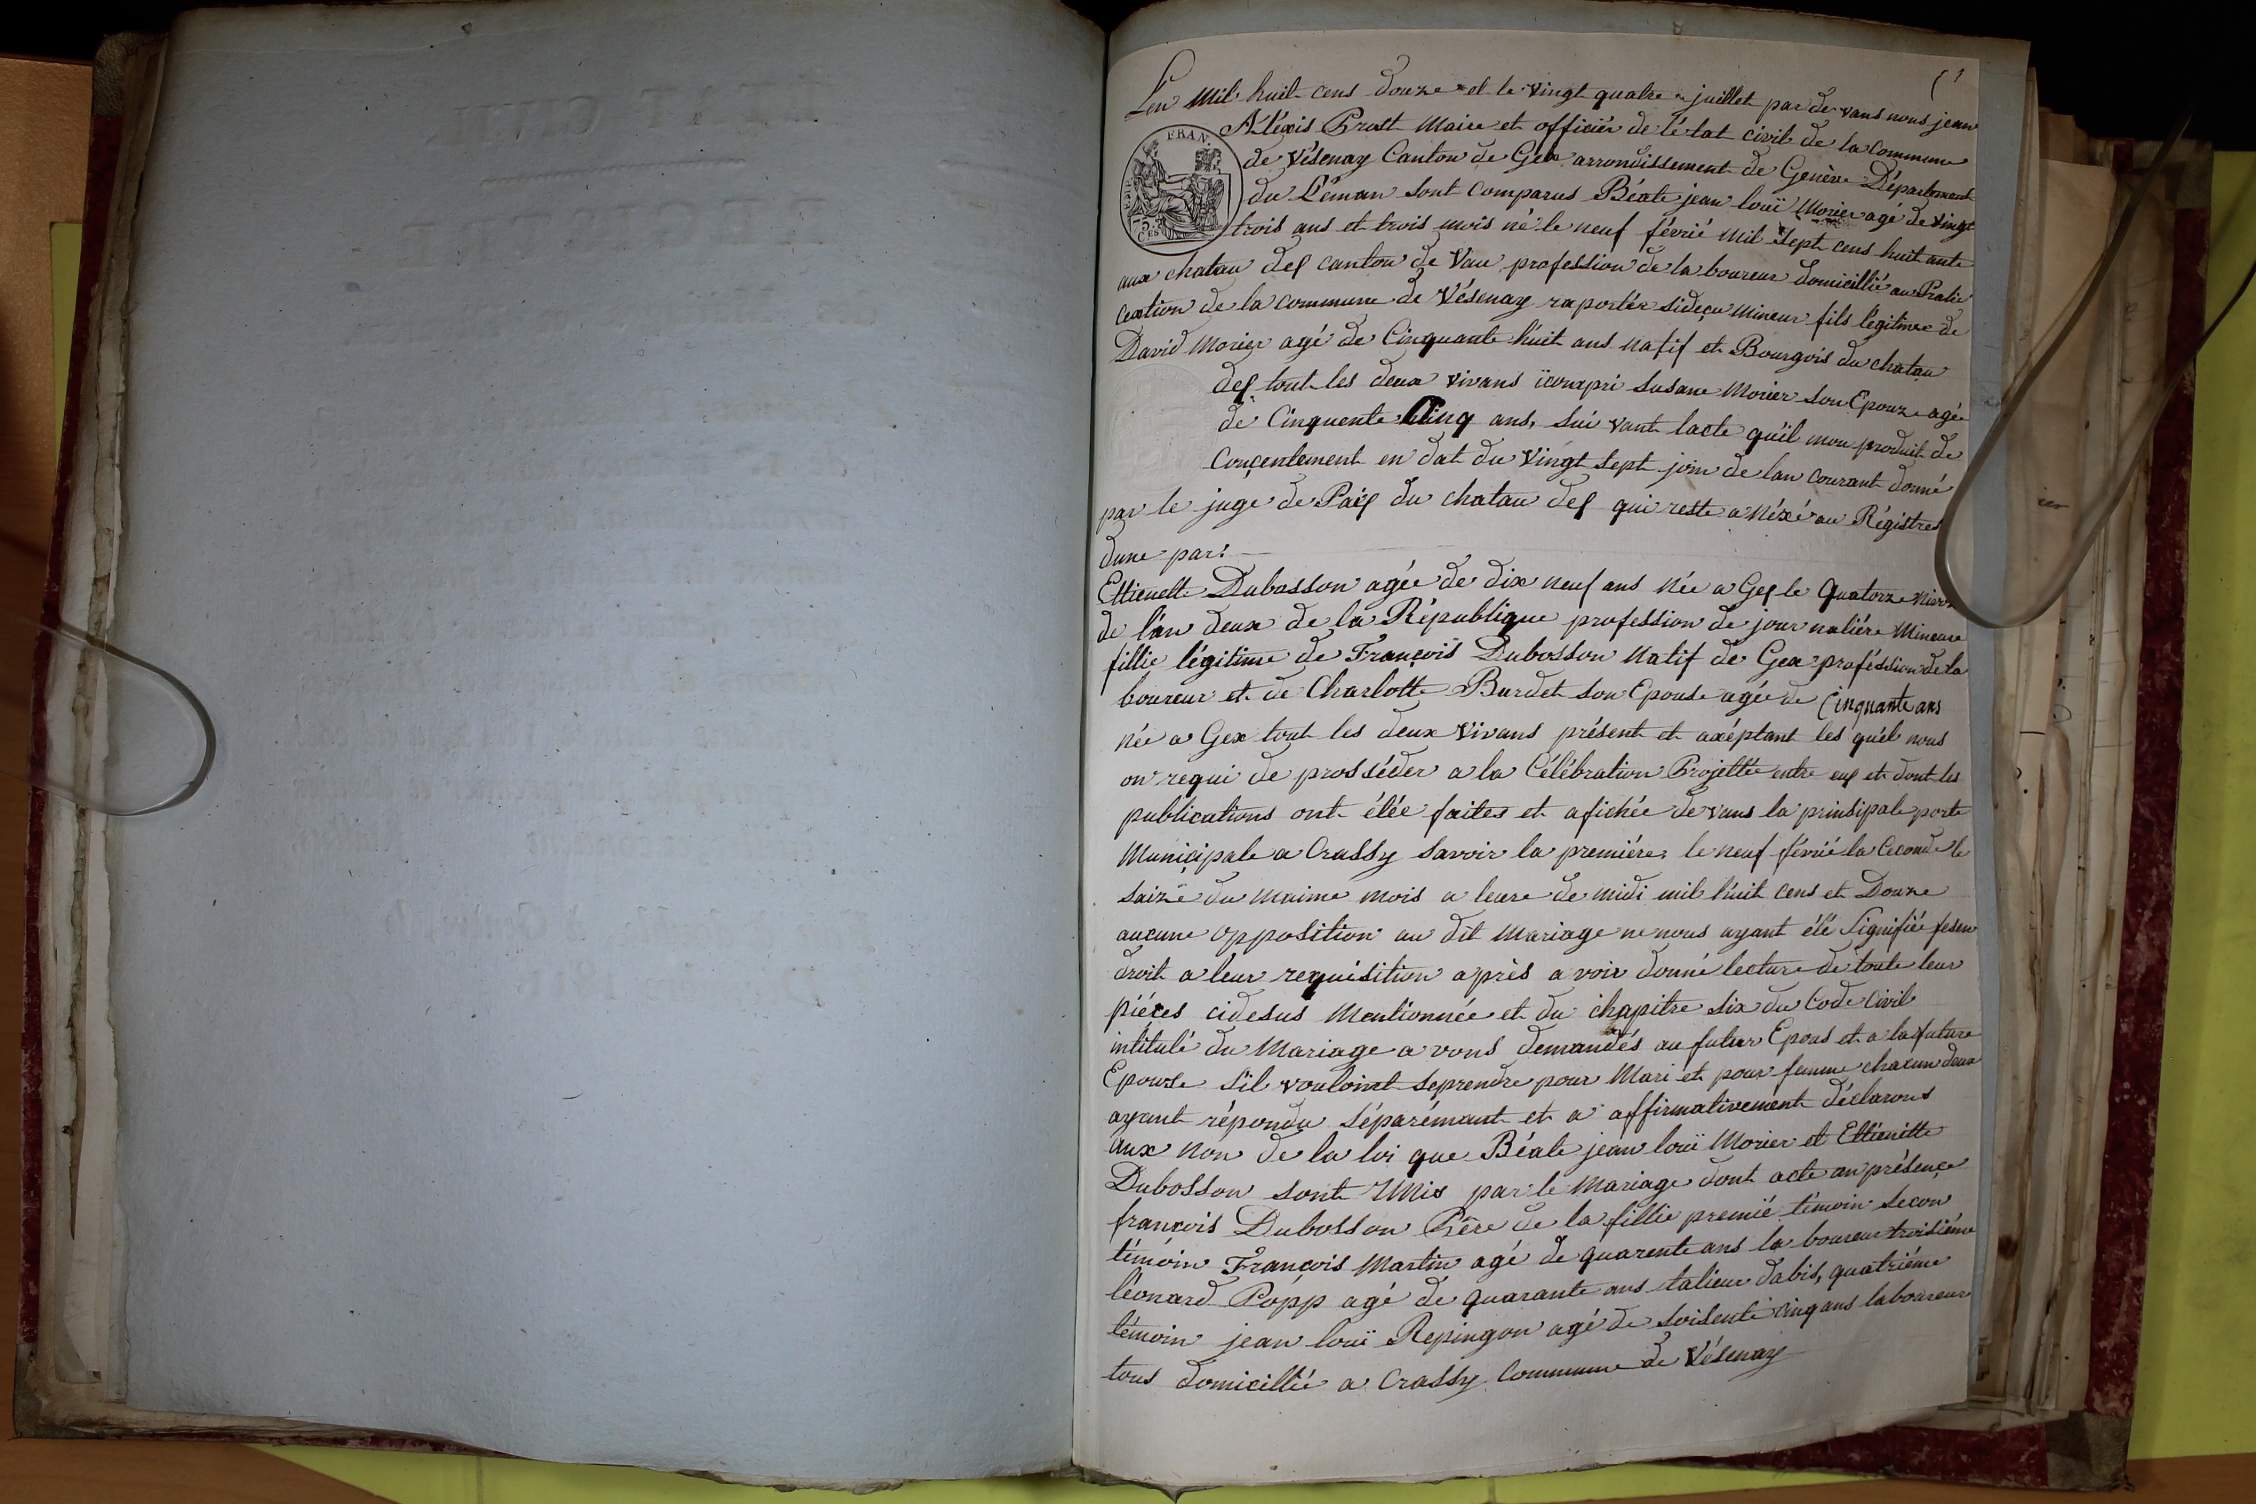 Len mil huit cens douze et le vingt quatre juillet par de vans nous jean
Aléxis Prost Maire et officiér de létat civil de la Commune
de Vésenay Canton de Gex arrondissement de Genève Département
du Léman sont comparus Béate jean louï Morier agé de vingt
trois ans et trois mois né le neuf févrié mil sept cens huit ante
aux chatau def canton de Vau profession de la boureur domicillié au
cextion de la commune de Vésenay raportér sideçu mineur fils legitime de
David Morier agé de Cinquante huit ans natif et Bourgois du chatau
def tout les deux vivans icompri Susane Morier son Epouze agé
de Cinquente Cinq ans, sui vant lacte quil mon produit de
Conçentement en dat du vingt sept join de lan courant donné
par le juge de Paif du chatau def qui reste a néxé au Régistres
dune par:
Ettienette Dubosson agée de dix neuf ans née a Gef le quatorze
de lan deux de la République profession de jour naliére Mineure
fillie légitime de François Dubosson Natif de Gex proféssion de la
boureur et de Charlotte Burdet son Epouse agée de Cinquante ans
née a Gex tout les deux vivans présent et axéptant les quel nous
on requi de prosséder a la Célébration Projettée entre euf et dont les
publications ont étée faites et afichée de vans la prinsipale porte
Municipale a Crassy savoir la premiére le neuf févrié la Ceconde le
saize du maime mois a leure de midi mil huit cens et Douze
aucune opposition au dit Mariage ne nous ayant été Signifiée fesen
droit a leur requisition après a voir donné lecture de toute leur
piéces cidesus Mentionnée et du chapitre six du Code Civil
intitulé du Mariage a vons demandés au futur Epous et a la future
Epouse sil vouloint seprendre pour Mari et pour femme chacun deux
ayant répondu séparémant et a affirmativement déclarons
aux non de la loi que Béate jean louï Morier et Ettienette
Dubosson sont Unis par le Mariage dont acte an présençe
françois Dubosson Père de la fillie premié témoin secon
témoin François Martin agé de quarente ans la boureur troisiéme
léonard Popp agé de quarante ans talieur dabis, quatriéme
témoin jean louï Repingon agé de soisente cinq ans laboureur
tous domicillié a Crassy Commune de Vésenay
FRAN.